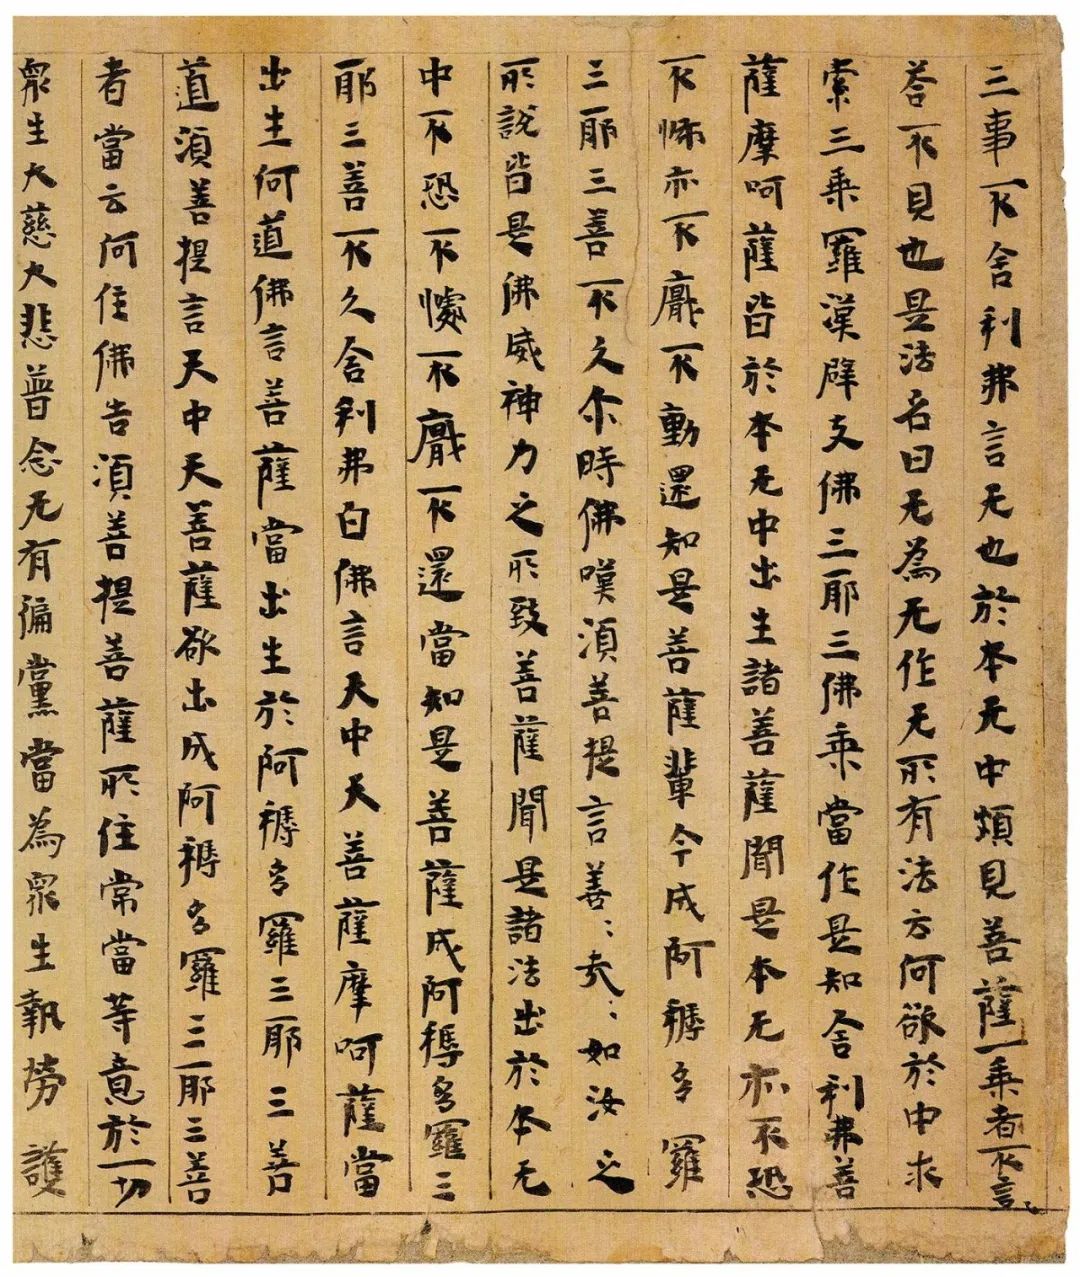 三事不舍利弗言无也於本无中頗見菩薩一乘者不言
荅不見也是法名曰无為无作无所有法方何欲於中求
索三乘羅漢辟支佛三耶三佛乘當作是知舍利弗菩
薩摩呵薩皆於本无中出生諸菩薩聞是本无亦不恐
不怖亦不厭不動還知是菩薩輩今成阿耨多羅
三耶三菩不久尒時佛嘆須菩提言善〻哉〻如汝之
所說皆是佛威神力之所致菩薩聞是諸法出於本无
中不恐不懅不厭不還當知是菩薩成阿耨多羅三
耶三菩不久舍利弗白佛言天中天菩薩摩呵薩當
出生何道佛言菩薩當出生於阿耨多羅三耶三菩
道須菩提言天中天菩薩欲出成阿耨多羅三耶三菩
者當云何住佛告須菩提菩薩所住常當等意於一切
衆生大慈大悲普念无有偏黨當為衆生執勞護